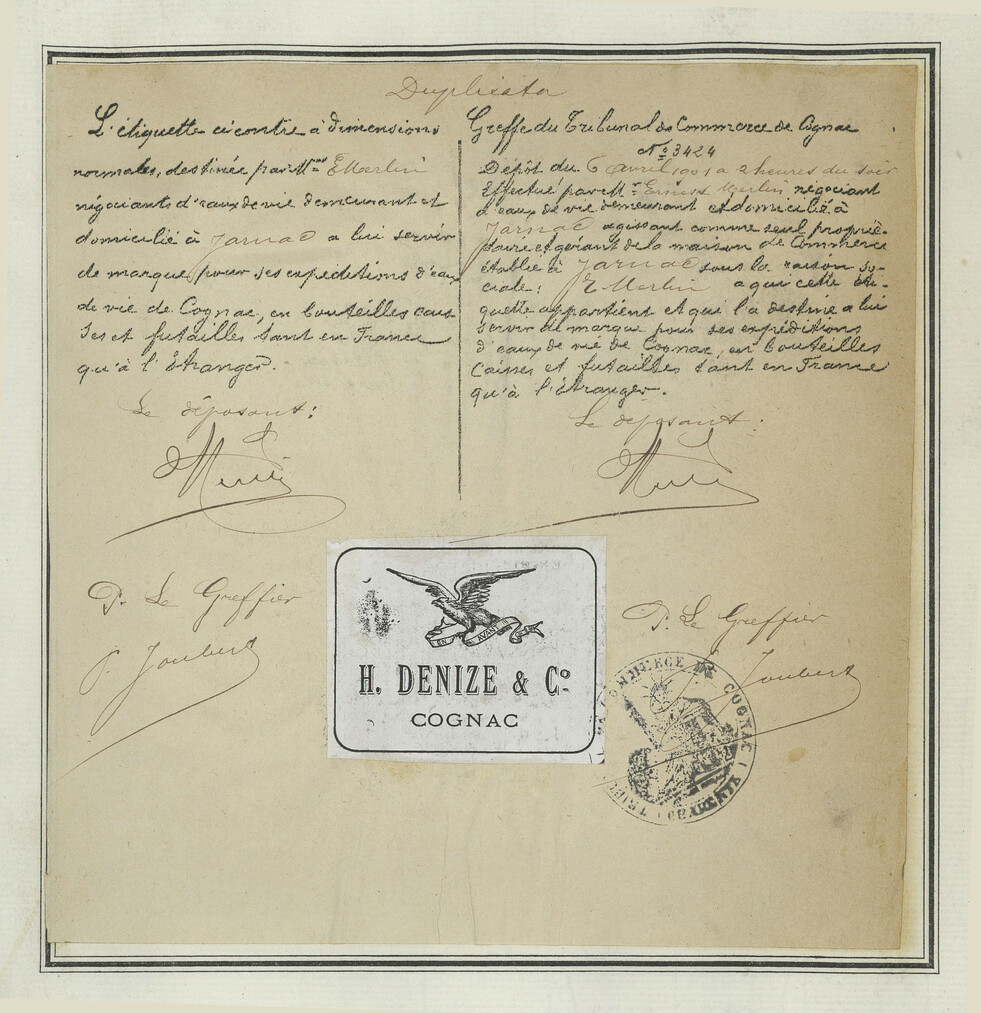 Duplicata
L'étiquette ci contre à dimensions
normales, destinée par Mr E Merlin
négociants d'eaux de vie demeurant et
domicilié à Jarnac a lui servir
de marque, pour ses expéditions d'eaux
de vie de Cognac, en bouteilles cais
ses et futailles tant en France
qu'à l'Étranger.
Le déposant:
P. Le Greffier
P. Joubert
Greffe du Tribunal de Commerce de Cognac
No 3424
Dépôt du 6 avril à 2 heures du soir
Effectué par Mr Ernest Merlin négociant
d'eaux de vie demeurant et domicilié à
Jarnac agissant comme seul proprié-
taire et gérant de la maison de Commerce
établie à Jarnac sous la raison so-
ciale: E Merlin a qui cette éti-
quette appartient et qui l'a destiné a lui
servir de marque pour ses expéditions
d'eaux de vie de Cognac, en bouteilles
caisses et futailles tant en France
qu'à l'étranger.
Le déposant:
P. Le Greffier
Joubert
EN AVANT
H. DENIZE & Co
COGNAC
COMMERCE DE COGNAC